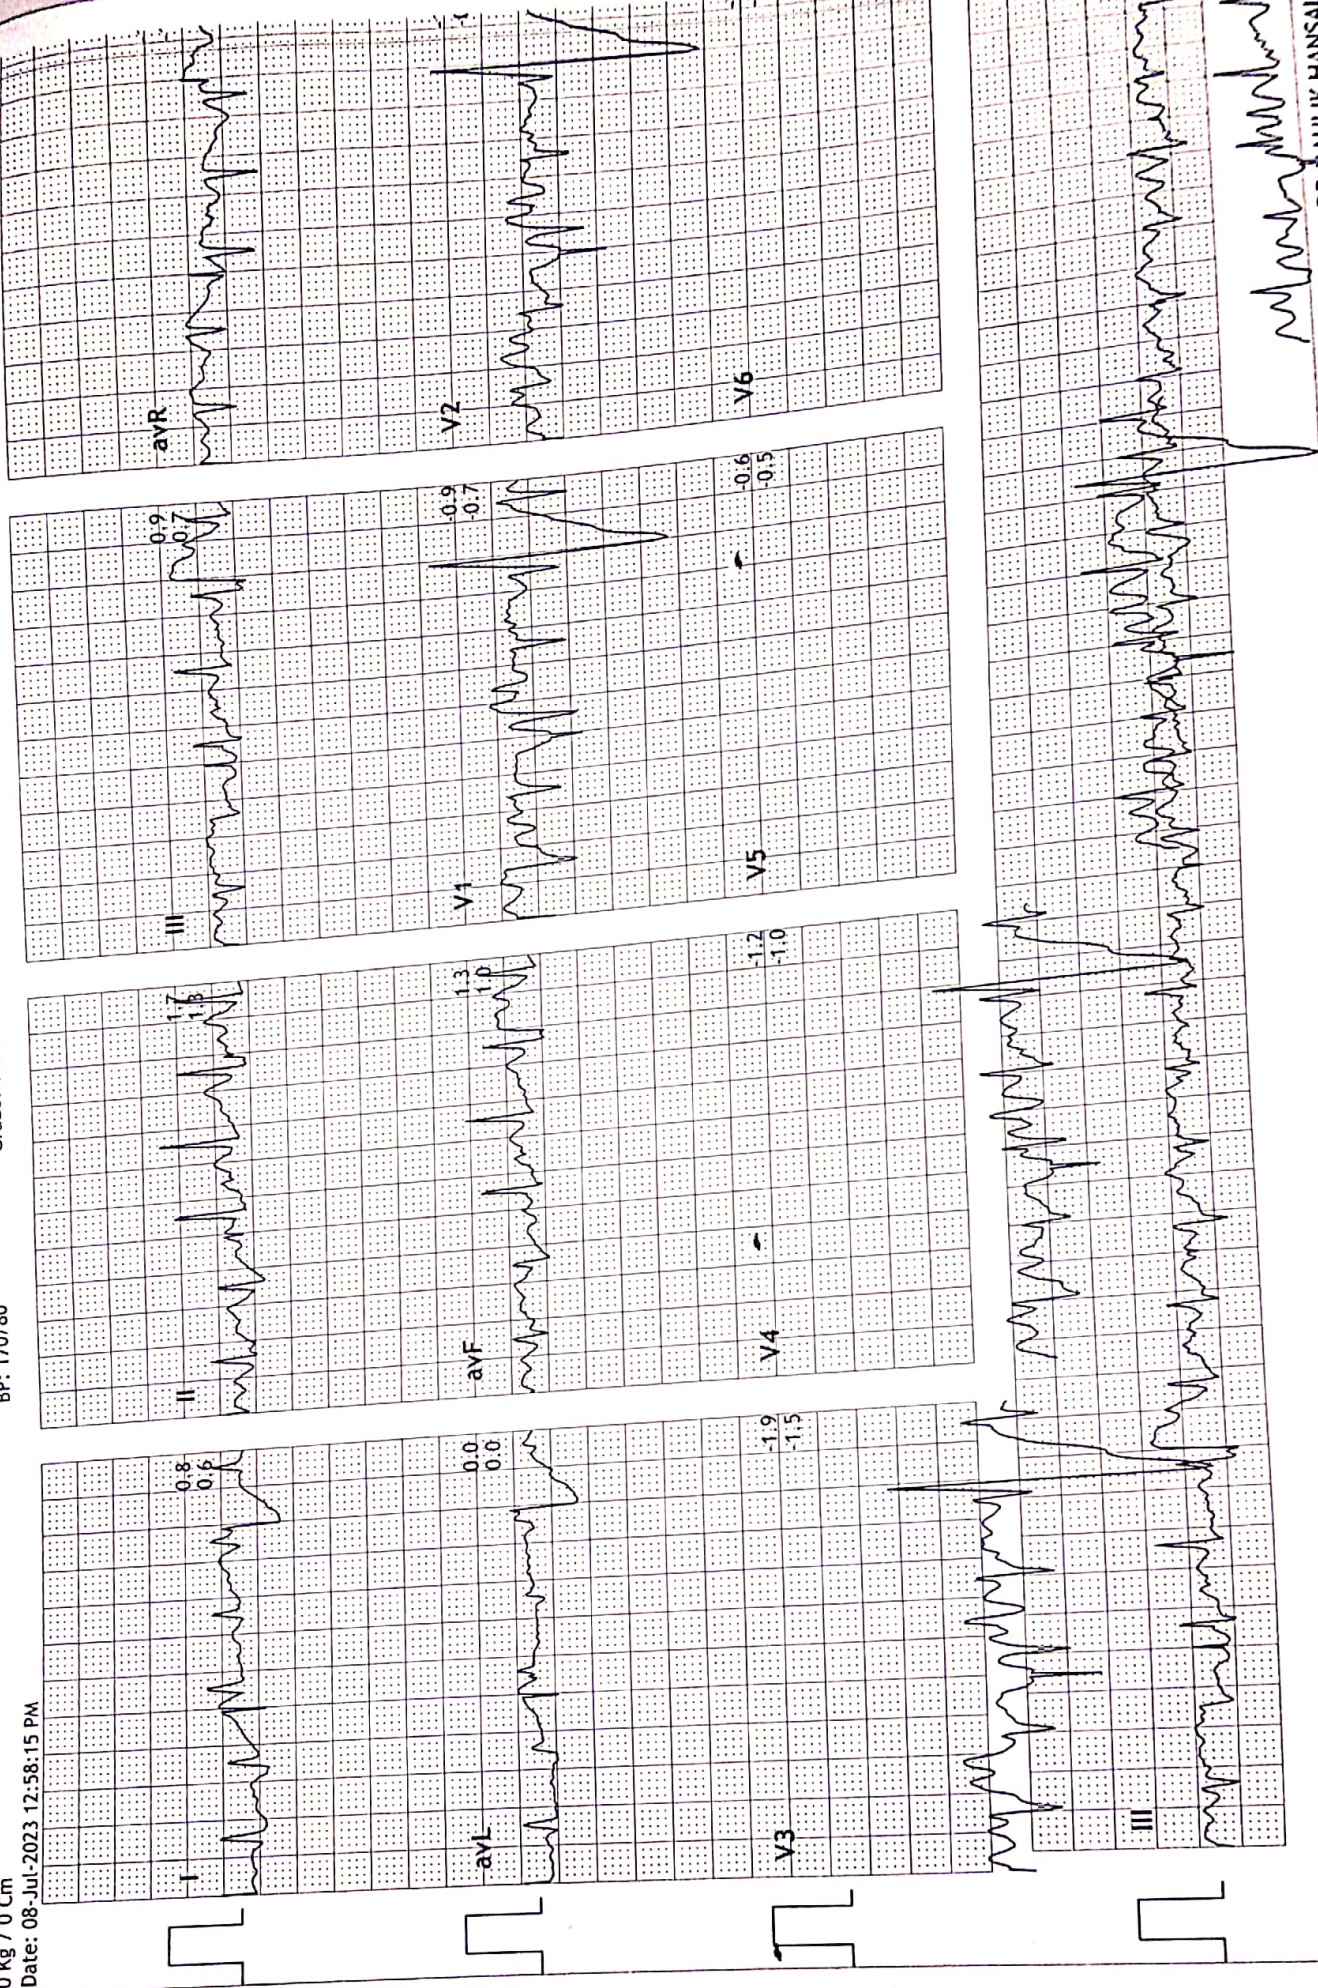 0 Kg / 0 Cm
Date: 08-Jul-2023 12:58:15 PM
BP: 170/80
I
0.8
0.6
II
1.7
1.3
III
0.9
0.7
avR
avL
0.0
0.0
avF
1.3
1.0
V1
-0.9
-0.7
V2
V3
-1.9
-1.5
V4
-1.2
-1.0
V5
-0.6
-0.5
V6
III